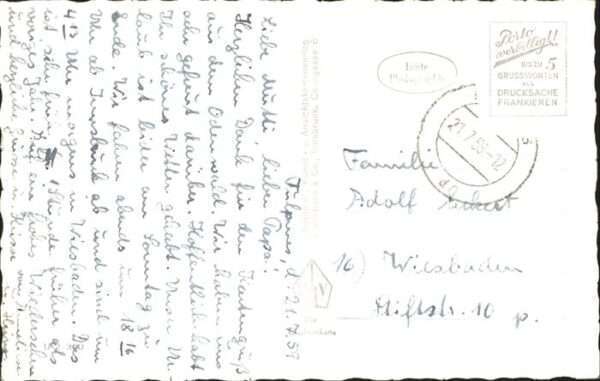 Fulpmes, d. 21.7.58
Liebe Mutti, lieber Papa!
Herzlichen Dank für den Kartengruß
aus dem Odenwald. Wir haben uns
sehr gefreut darüber. Hoffentlich habt
Ihr schönes Wetter gehabt. Unser Ur-
laub ist leider am Sonntag zu
Ende. Wir fahren abends um 18 16
Uhr ab Innsbruck ab und sind um
4 13 Uhr morgens in Wiesbaden. Das
ist sehr früh, 1 Stunde früher als
voriges Jahr. Auf ein frohes Wiedersehen
und herzliche Grüsse u. Küsse von
Heinz
Echte
Photographie
Porto
verbilligt!!
BIS ZU 5
GRUSSWORTEN
ALS
DRUCKSACHE
FRANKIEREN.
Familie
Adolf
16) Wiesbaden
Stiftstr. 10 p.